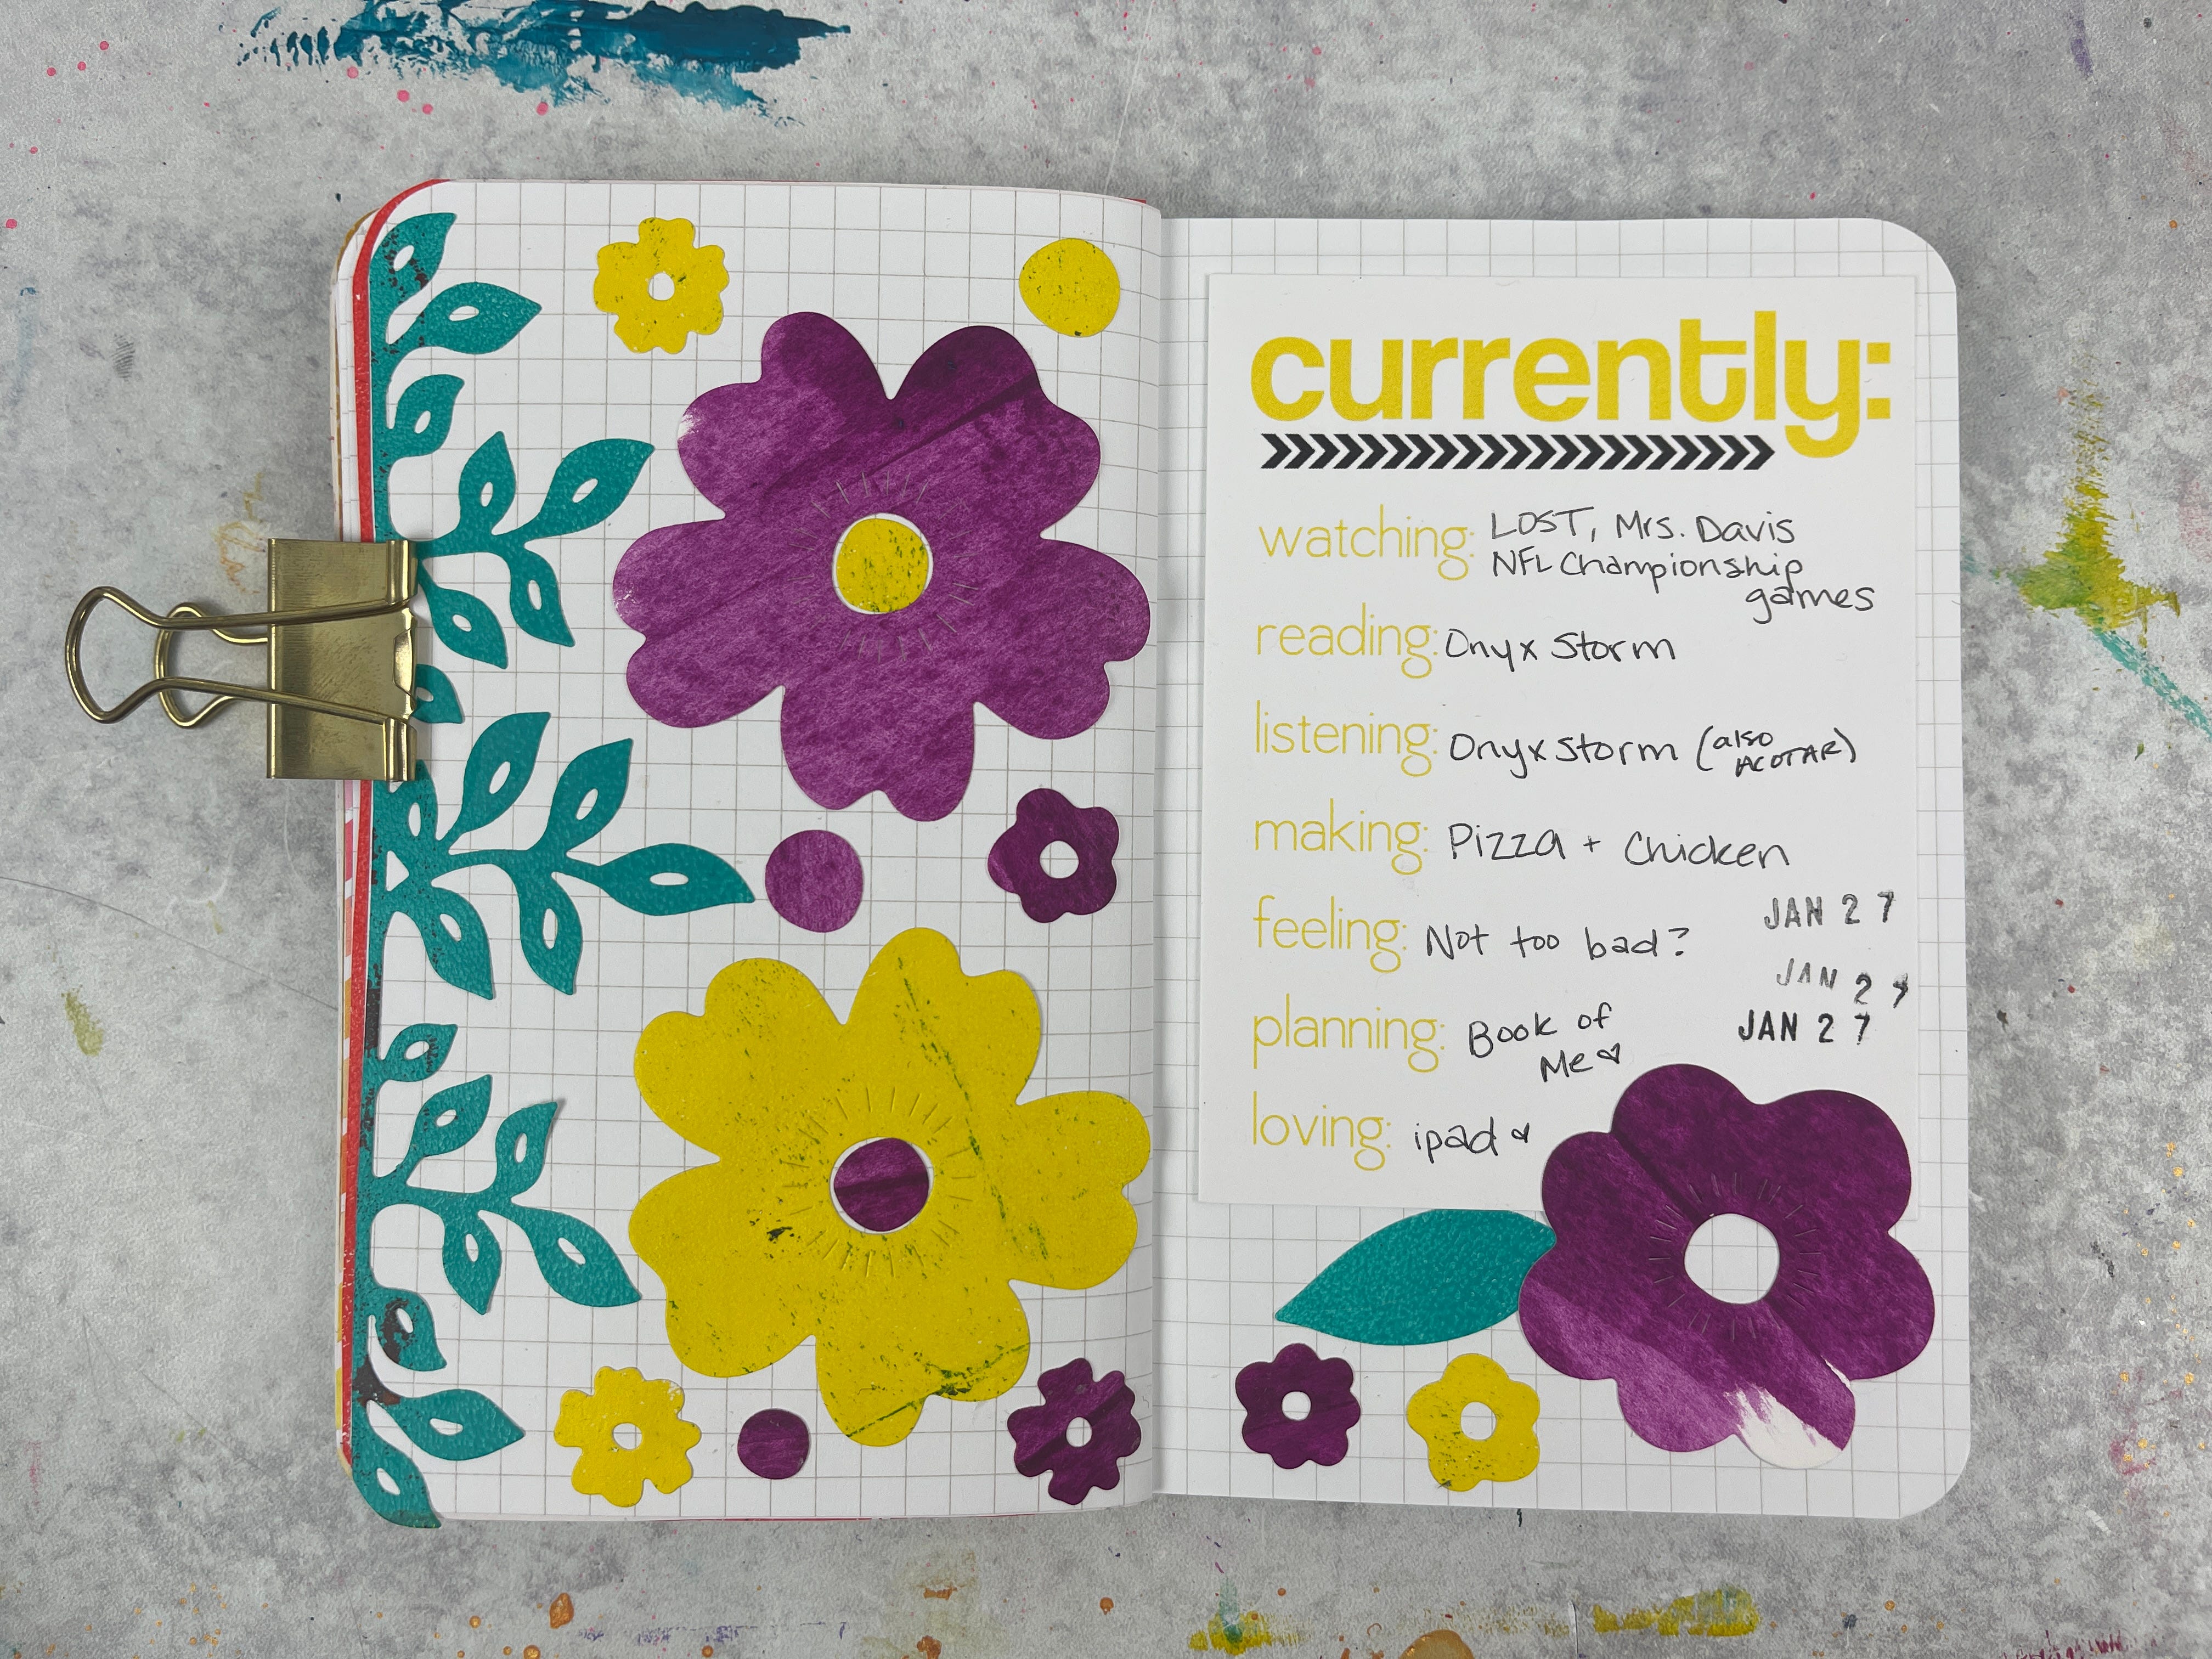 currently:
watching: LOST, Mrs. Davis
NFL Championship
games
reading: Onyx Storm
listening: Onyx Storm (also
ACOTAR)
making: Pizza + Chicken
feeling: Not too bad?
JAN 27
JAN 27
planning: Book of
Me
JAN 27
loving: ipad